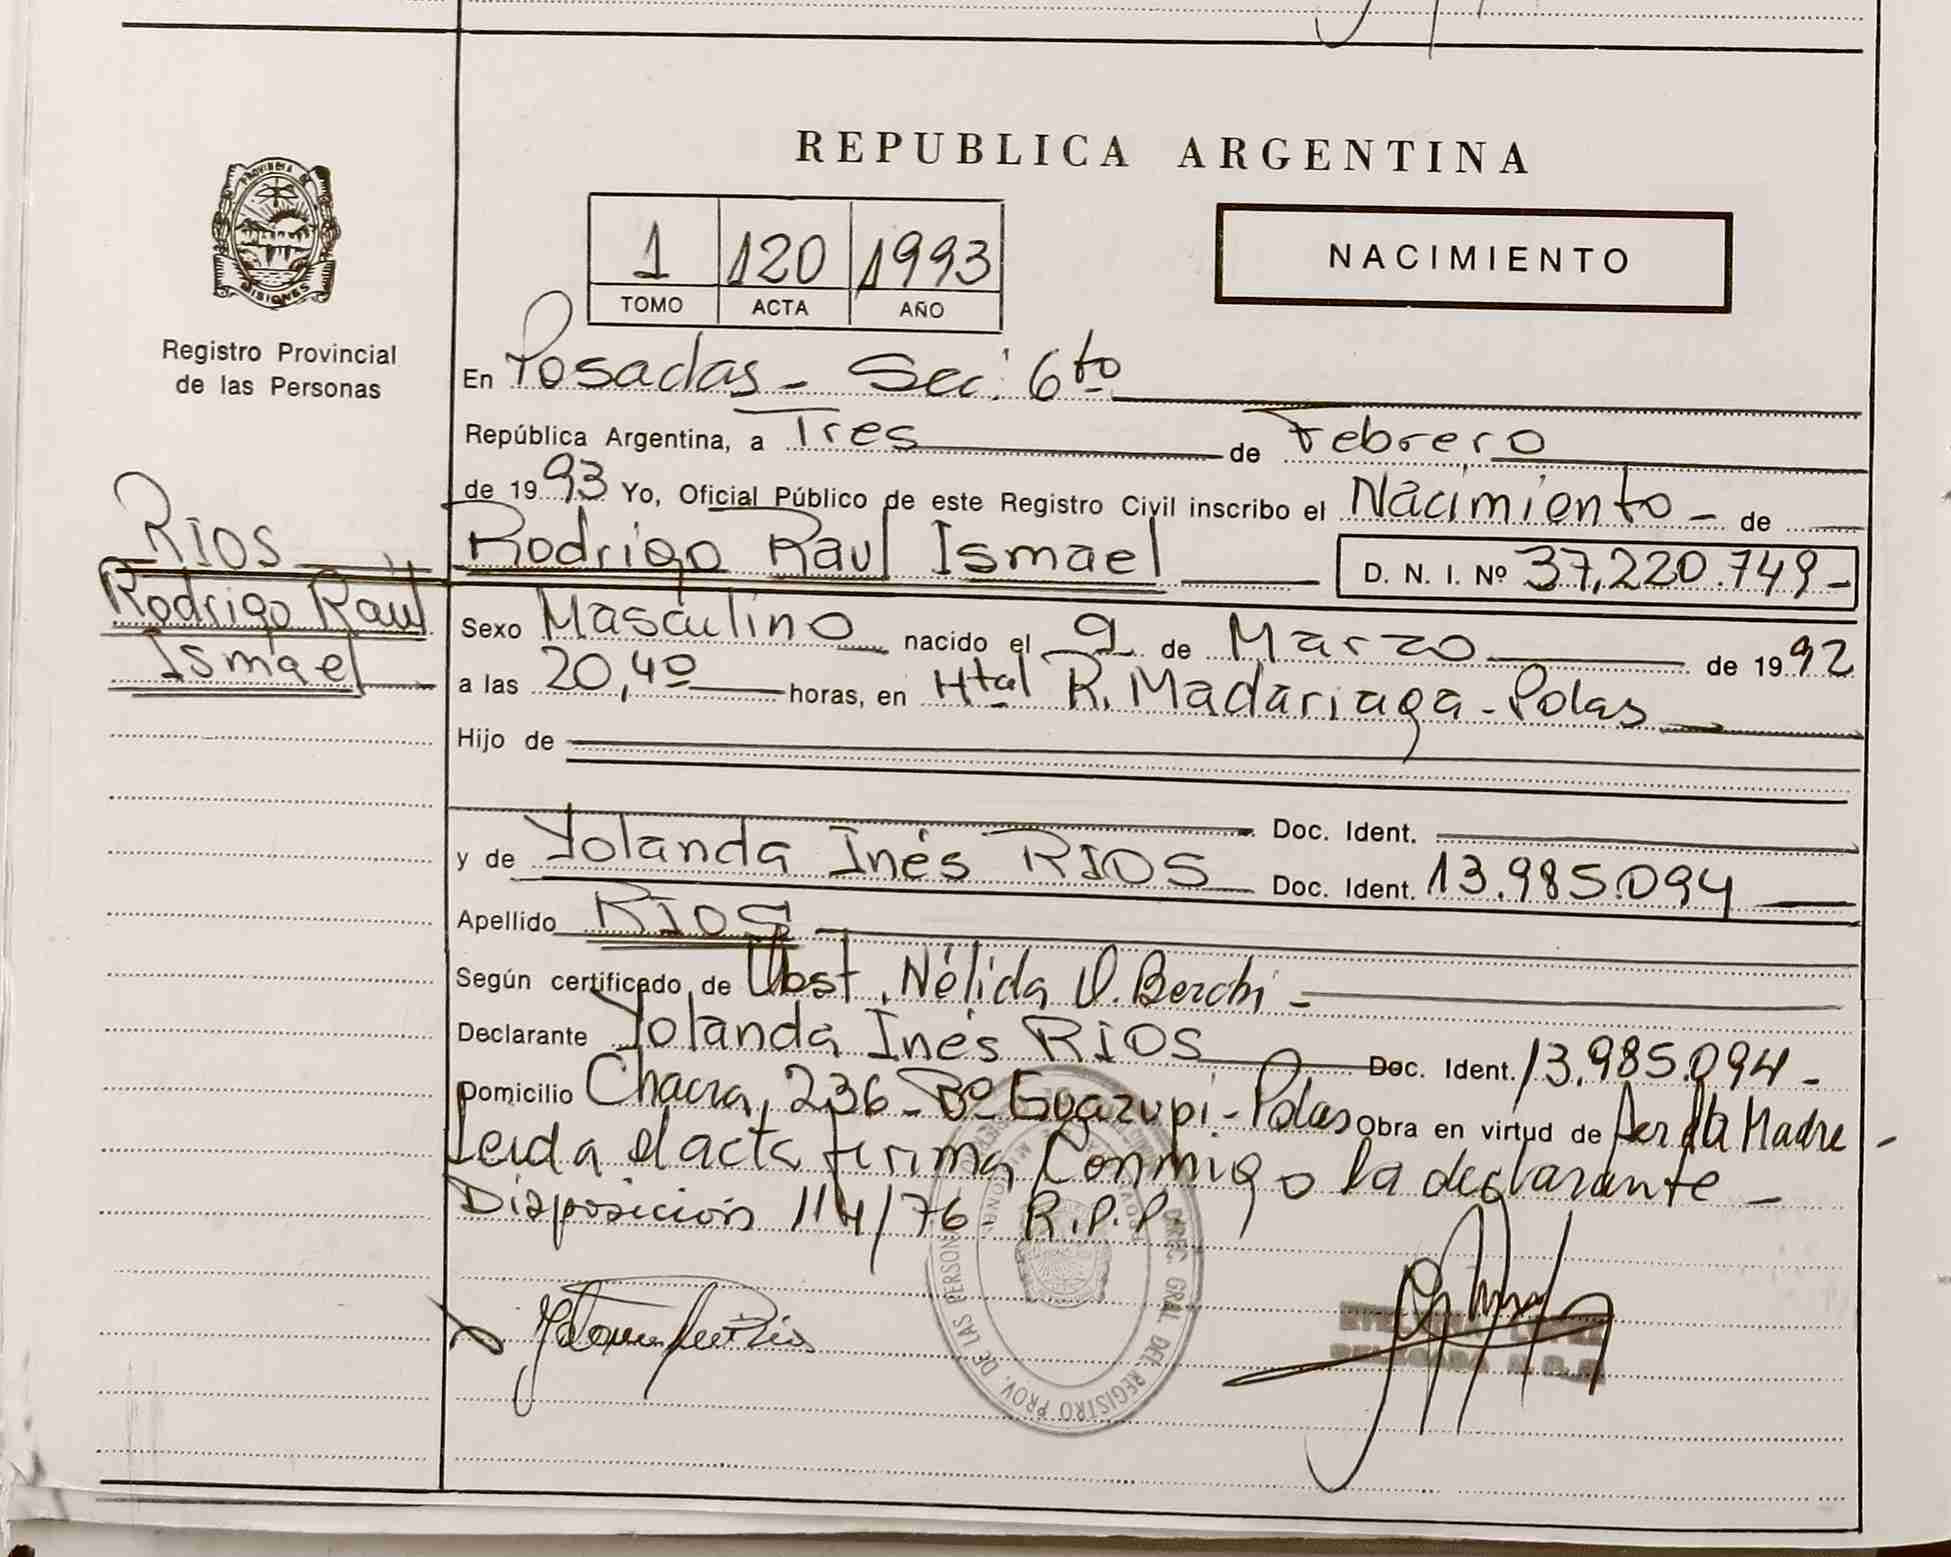 PROVINCIA DE
MISIONES
Registro Provincial
de las Personas
RIOS
Rodrigo Raul
Ismael
REPUBLICA ARGENTINA
1 120 1993
TOMO ACTA AÑO
NACIMIENTO
En Posadas - Sec: 6to
República Argentina, a Tres de Febrero
de 1993 Yo, Oficial Público de este Registro Civil inscribo el Nacimiento - de
Rodrigo Raul Ismael D. N. I. Nº 37,220.749-
Sexo Masculino nacido el 9 de Marzo de 1992
a las 20,40 horas, en Htal R. Madariaga - Pdas
Hijo de
Doc. Ident.
y de Yolanda Inés RIOS Doc. Ident. 13.985.094
Apellido RIOS
Según certificado de Obst. Nélida Berchi -
Declarante Yolanda Inés RIOS Doc. Ident. 13.985.094 -
Domicilio Chacra, 236 - Bº Guazupi - Pdas Obra en virtud de Ser la Madre -
Leida el acta firma Conmigo la declarante -
Disposición 114/76 R.P.P.
DIREC. GRAL. DEL REGISTRO PROV. DE LAS PERSONAS